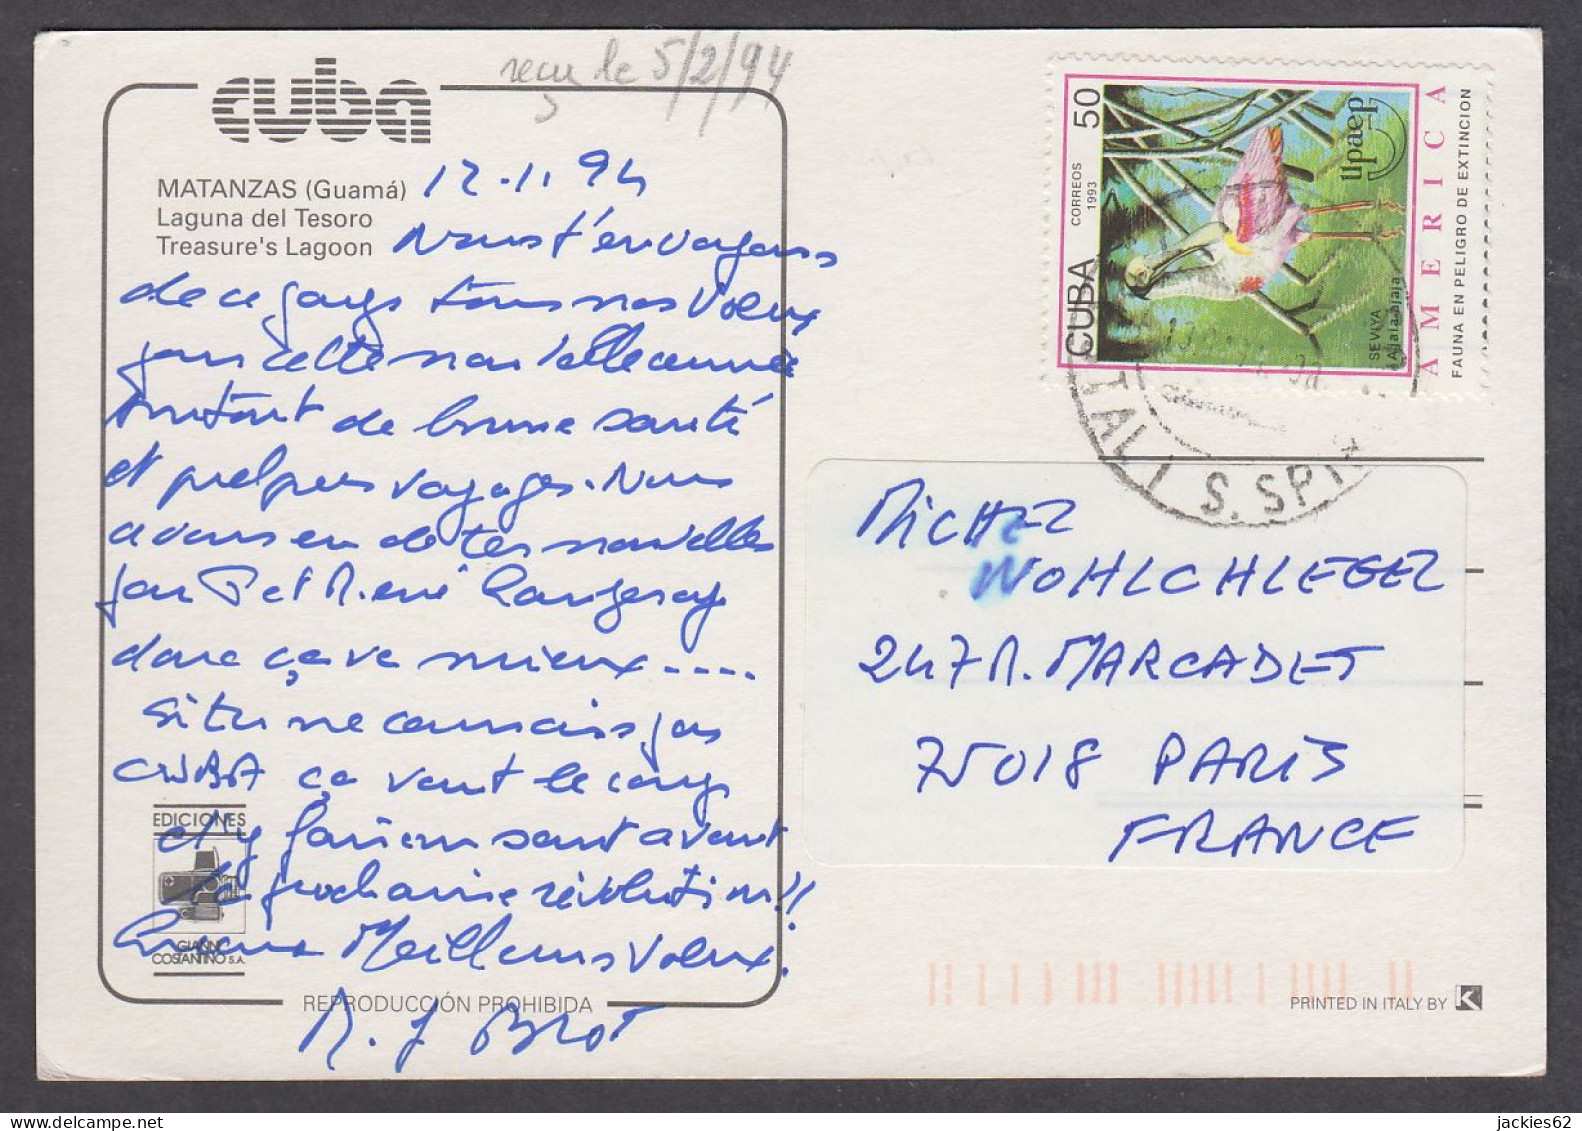 cuba
reçu le 5/2/94
MATANZAS (Guamá)
Laguna del Tesoro
Treasure's Lagoon
12.1.94
Nous t'envoyons
de ce pays tous nos voeux
pour cette nouvelle année
surtout de bonne santé
et quelques voyages. Nous
avons eu de tes nouvelles
par P et René
donc ça va mieux ....
Si tu ne connais pas
CUBA ça vaut le coup
d'y faire un saut avant
la prochaine révolution !!
Meilleurs Voeux.
R. J BROT
EDICIONES
GIANNI
COSTANTINO S.A.
REPRODUCCIÓN PROHIBIDA
CUBA 50
CORREOS
1993
upaep
SEVIYA
Ajaia ajaja
AMERICA
FAUNA EN PELIGRO DE EXTINCION
S. SPIR
MICHEL
WOHLCHLEGEL
247 R. MARCADET
75018 PARIS
FRANCE
PRINTED IN ITALY BY K
jackies62